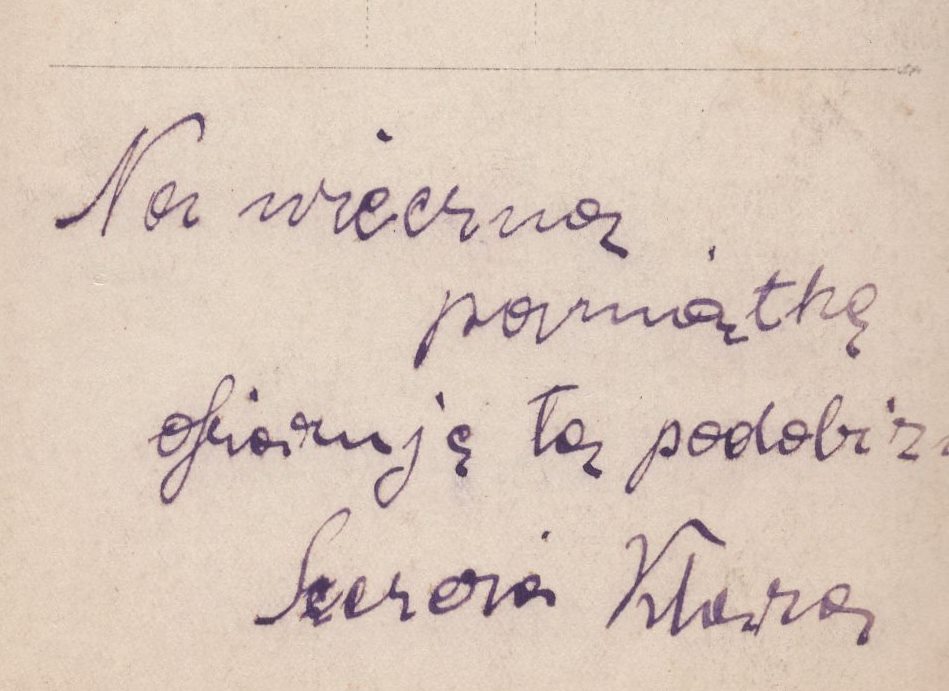 Na wieczną
pamiątkę
ofiaruję tą podobiz
Klara